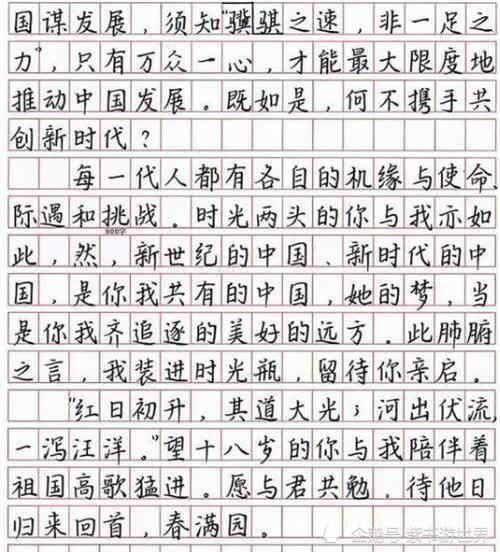 国谋发展，须知“骥骐之速，非一足之
力”，只有万众一心，才能最大限度地
推动中国发展。既如是，何不携手共
创新时代？
每一代人都有各自的机缘与使命、
际遇和挑战。时光两头的你与我亦如
900字
此，然，新世纪的中国、新时代的中
国，是你我共有的中国，她的梦，当
是你我齐追逐的美好的远方。此肺腑
之言，我装进时光瓶，留待你亲启。
“红日初升，其道大光；河出伏流，
一泻汪洋。”望十八岁的你与我陪伴着
祖国高歌猛进。愿与君共勉，待他日
归来回首，春满园。
企鹅号 紫书游世界